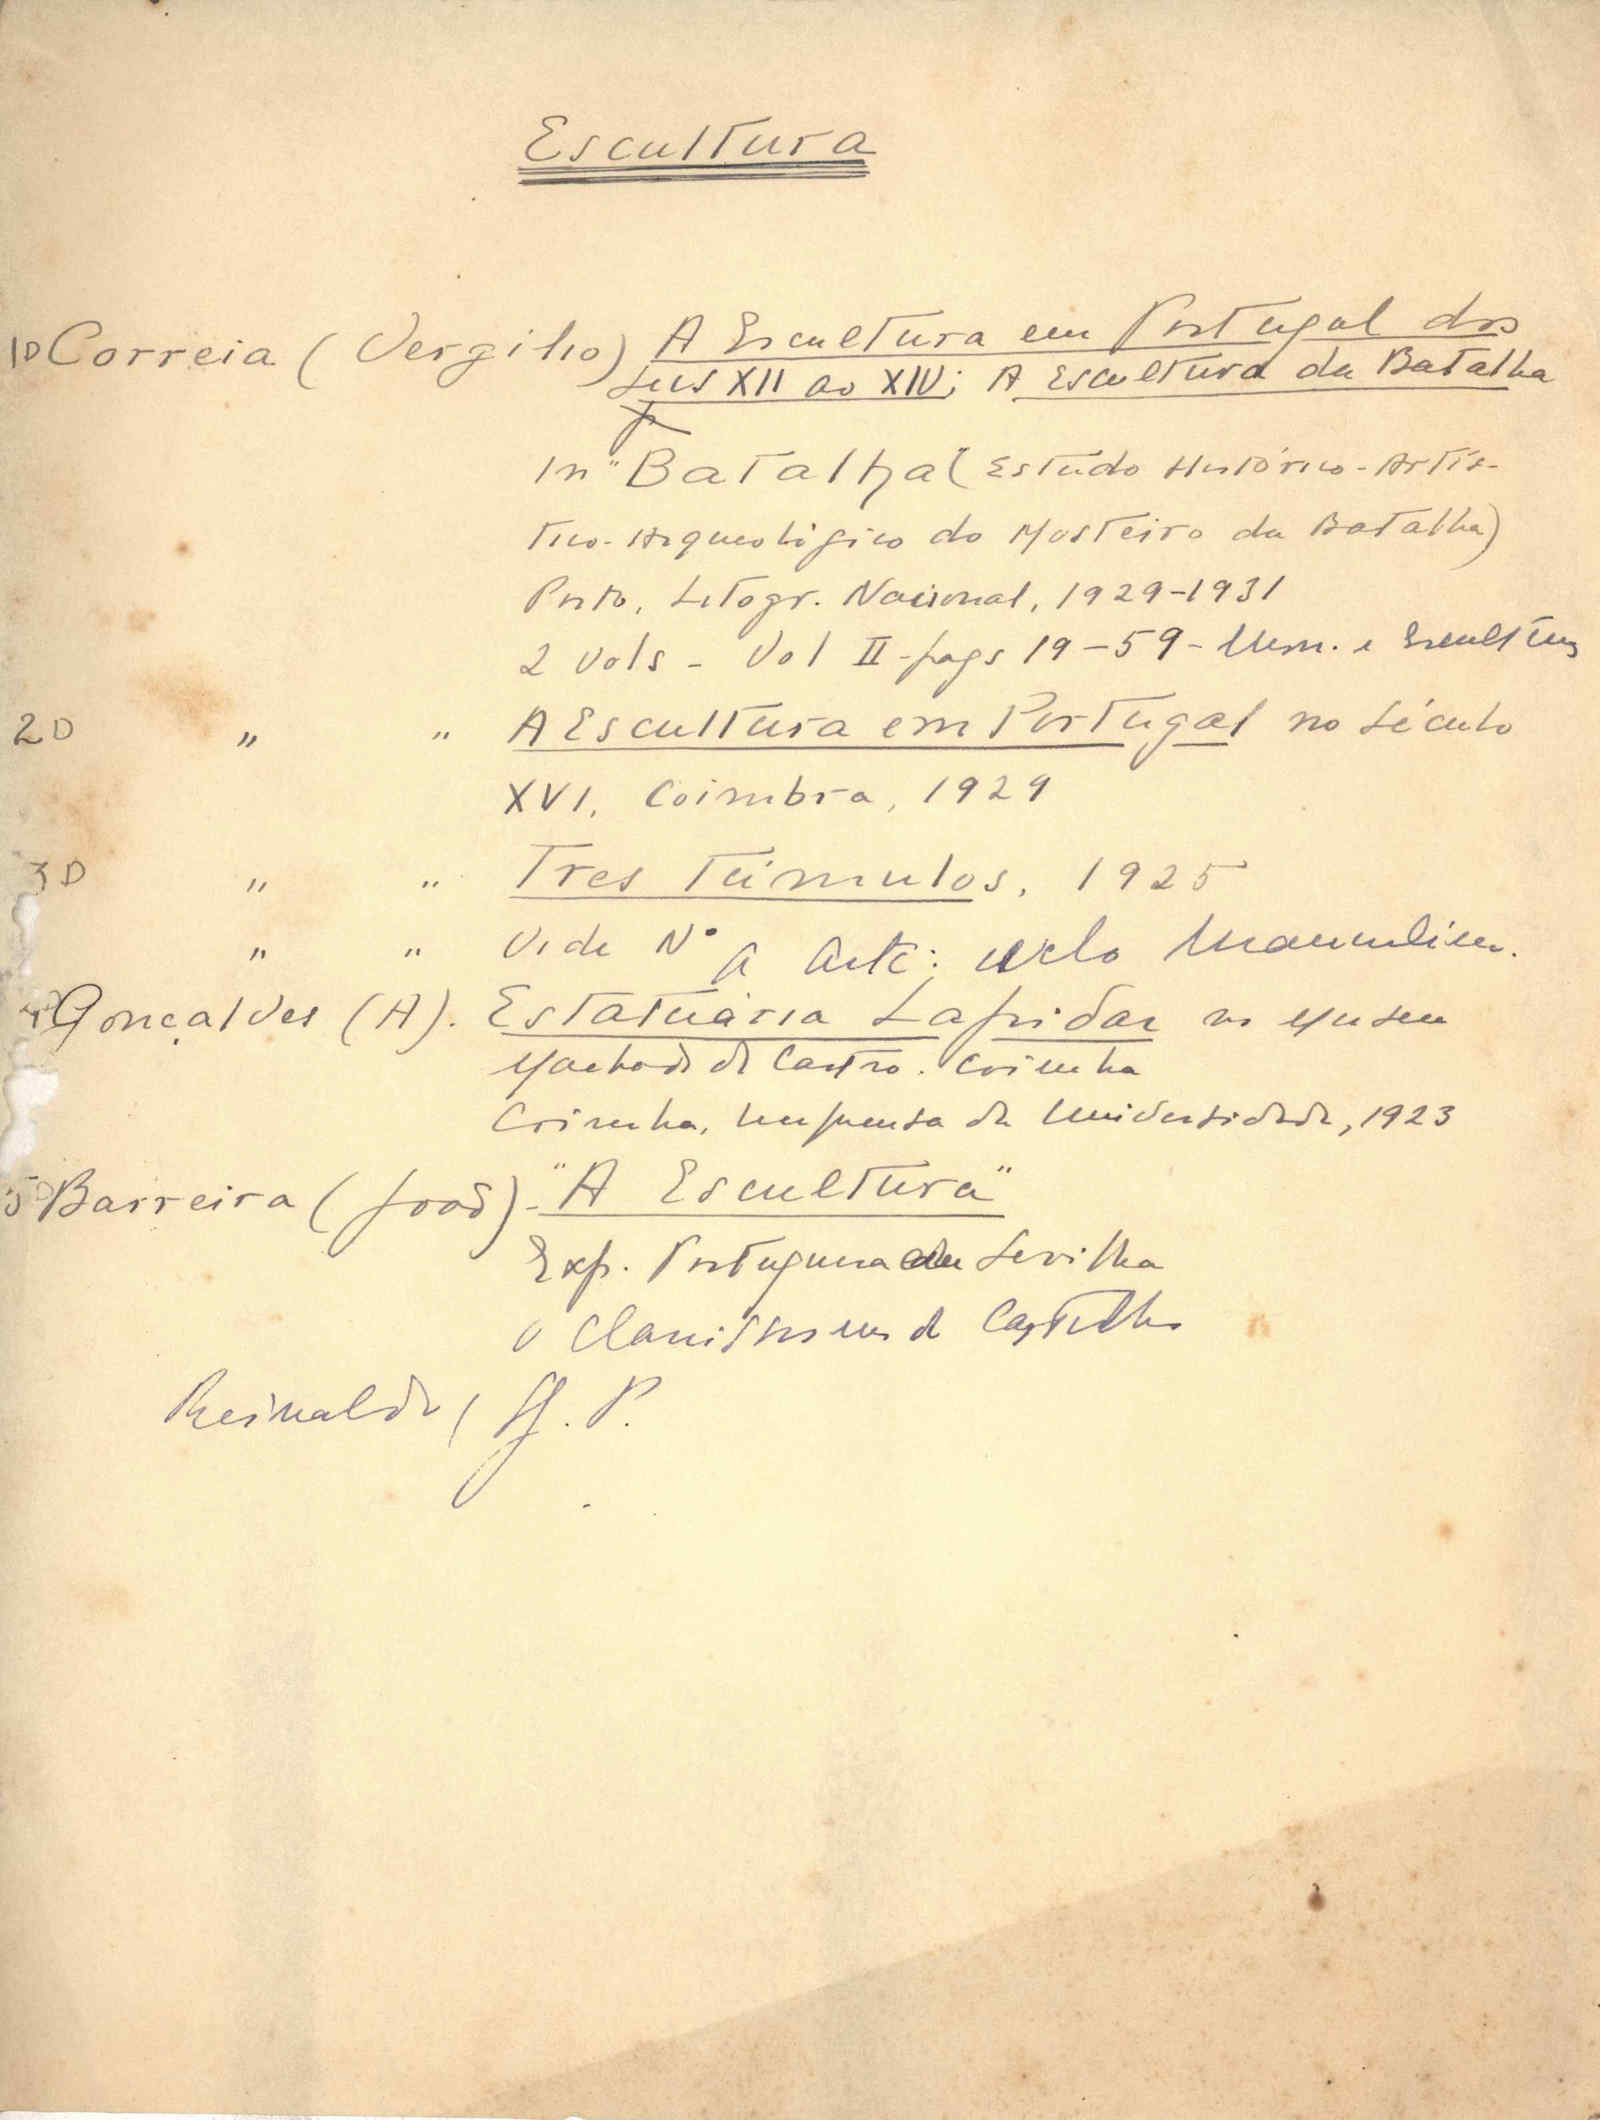 Escultura
1D Correia (Vergilio) A Escultura em Portugal dos
XII ao XIV; A Escultura da Batalha
In "Batalha (Estudo Histórico-Artís-
tico-Arqueológico do Mosteiro da Batalha)
Porto, Litogr. Nacional, 1929-1931
2 Vols - Vol II - pags 19-59 - e
2D " " A Escultura em Portugal no Século
XVI, Coimbra, 1929
3D " " Tres Túmulos, 1925
" " Vide Nº A Arte:
4D Gonçalves (A). Estatuária Lapidar no Museu
Machado de Castro. Coimbra
Coimbra, Imprensa da Universidade, 1923
5D Barreira (João) - "A Escultura"
Exp. Portuguesa em Sevilha
O de Castilho
Reinaldo,